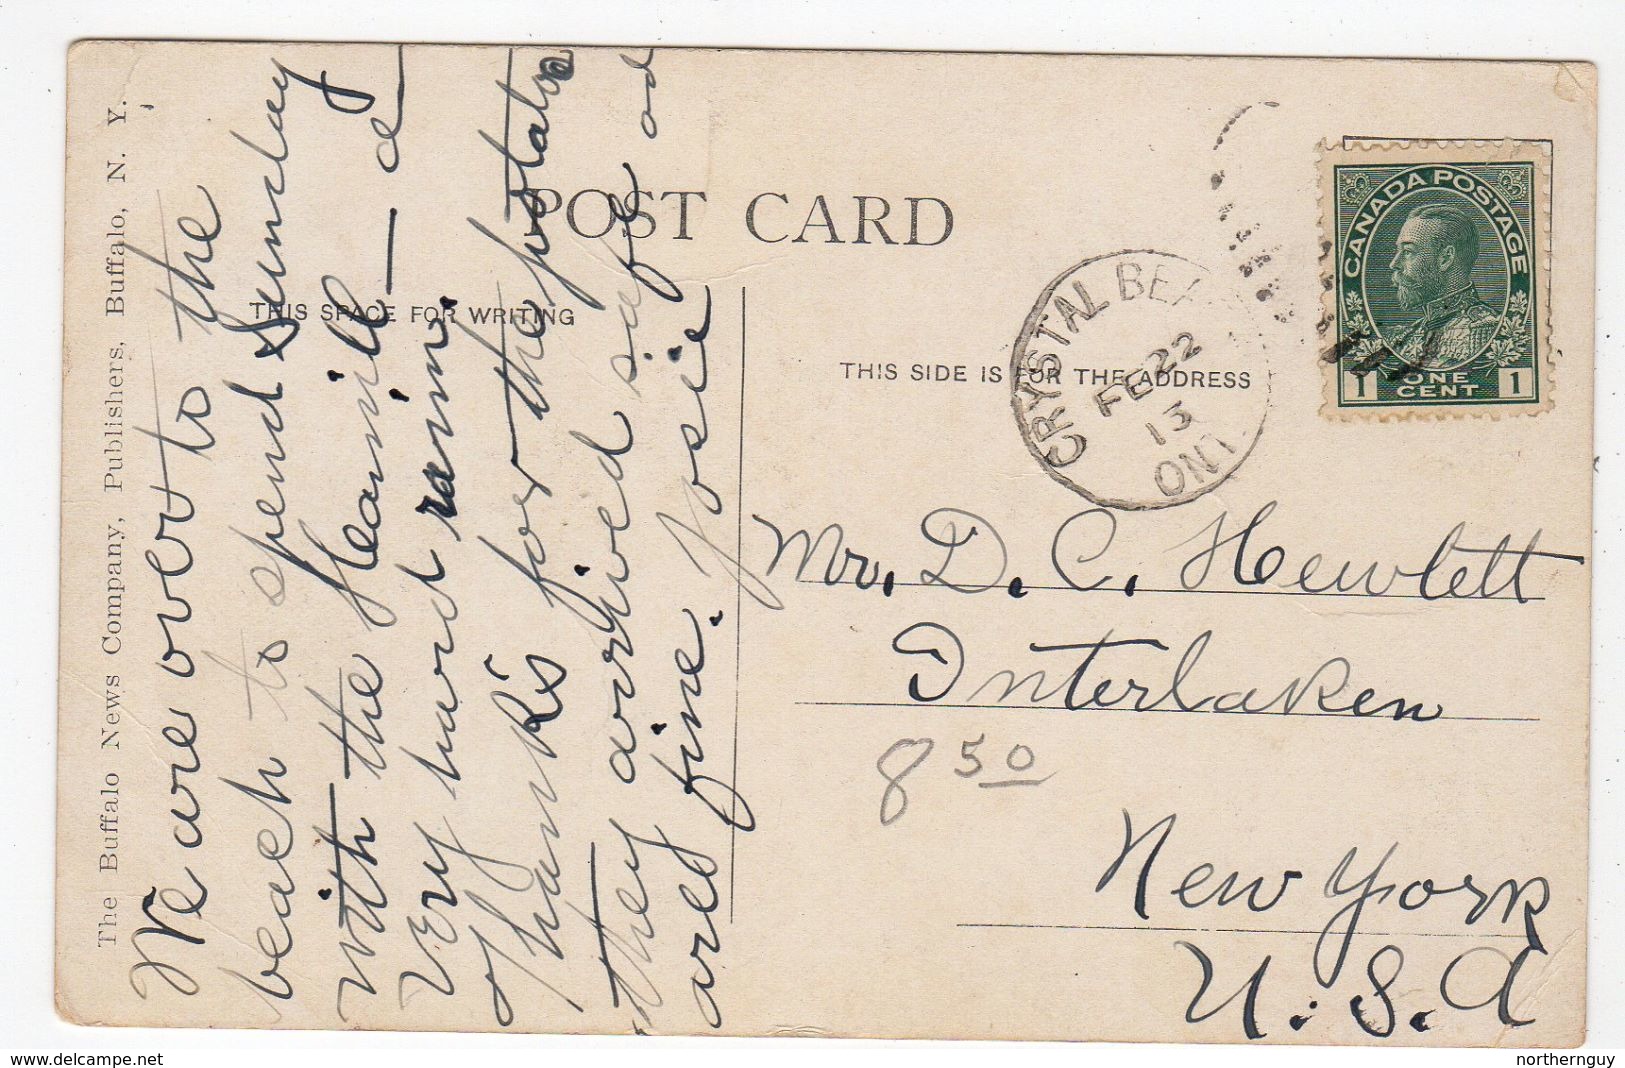 The Buffalo News Company, Publishers, Buffalo, N. Y.
POST CARD
THIS SPACE FOR WRITING
THIS SIDE IS FOR THE ADDRESS
We are over to the
beach to spend Sunday
with the
very hard rain.
Thank's for the potatoes
they arrived safe and
are fine. Josie
CRYSTAL BEA
FE 22
13
ONT.
CANADA POSTAGE
1 ONE CENT 1
Mr. D. C. Hewlett
Interlaken
8 50
New York
U.S.A
northernguy
www.delcampe.net